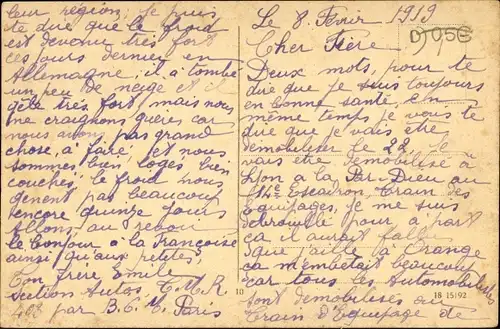 Le 8 Février 1919
Cher Frère
Deux mots, pour te
dire que je suis toujours
en bonne santé, en
même temps je vous te
dire que je vais être
démobiliser le 22, je
vais être démobilisé à
Lyon a la Par-Dieu au
14e Escadron, Train des
Equipages, je me suis
debrouillé pour, à part
ca il aurait fallu
que j'aille à Orange
ca m'embêtait beaucoup
car tous les Automobilistes
sont démobilisés au
Train d'Equipage de
leur région, je puis
te dire que le froid
est devenu très fort
ces jours dernier en
Allemagne; il a tombé
un peu de neige et il
gèle très fort, mais nous
ne craignons guères car
nous avons, pas grand
chose, à faire, et nous
sommes bien logés bien
couchés, le froid nous
gênent pas beaucoup
encore quinze jours
Allons, au revoir
le bonjour à la Françoise
ainsi qu'aux petites.
Ton frère Emile
Section Autos T.M.R
408 par B.C.M. Paris
10
18 15192
05€